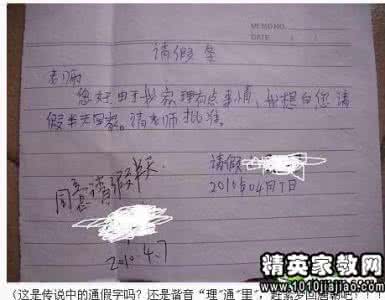 MEMO NO.
DATE
请假条
老师
您好,由于我家理有点事情,我想向您请
假半天回家。请老师批准。
请假
2010年04月7日
同意请假半天
2010.4.7
精英家教网
www.1010jiajiao.com
(这是传说中的通假字吗?还是谐音“理”通“里”?赶紧梦回唐朝吧!!)